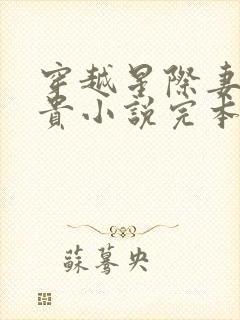 穿越星際妻
貴小說完本
蘇驀央